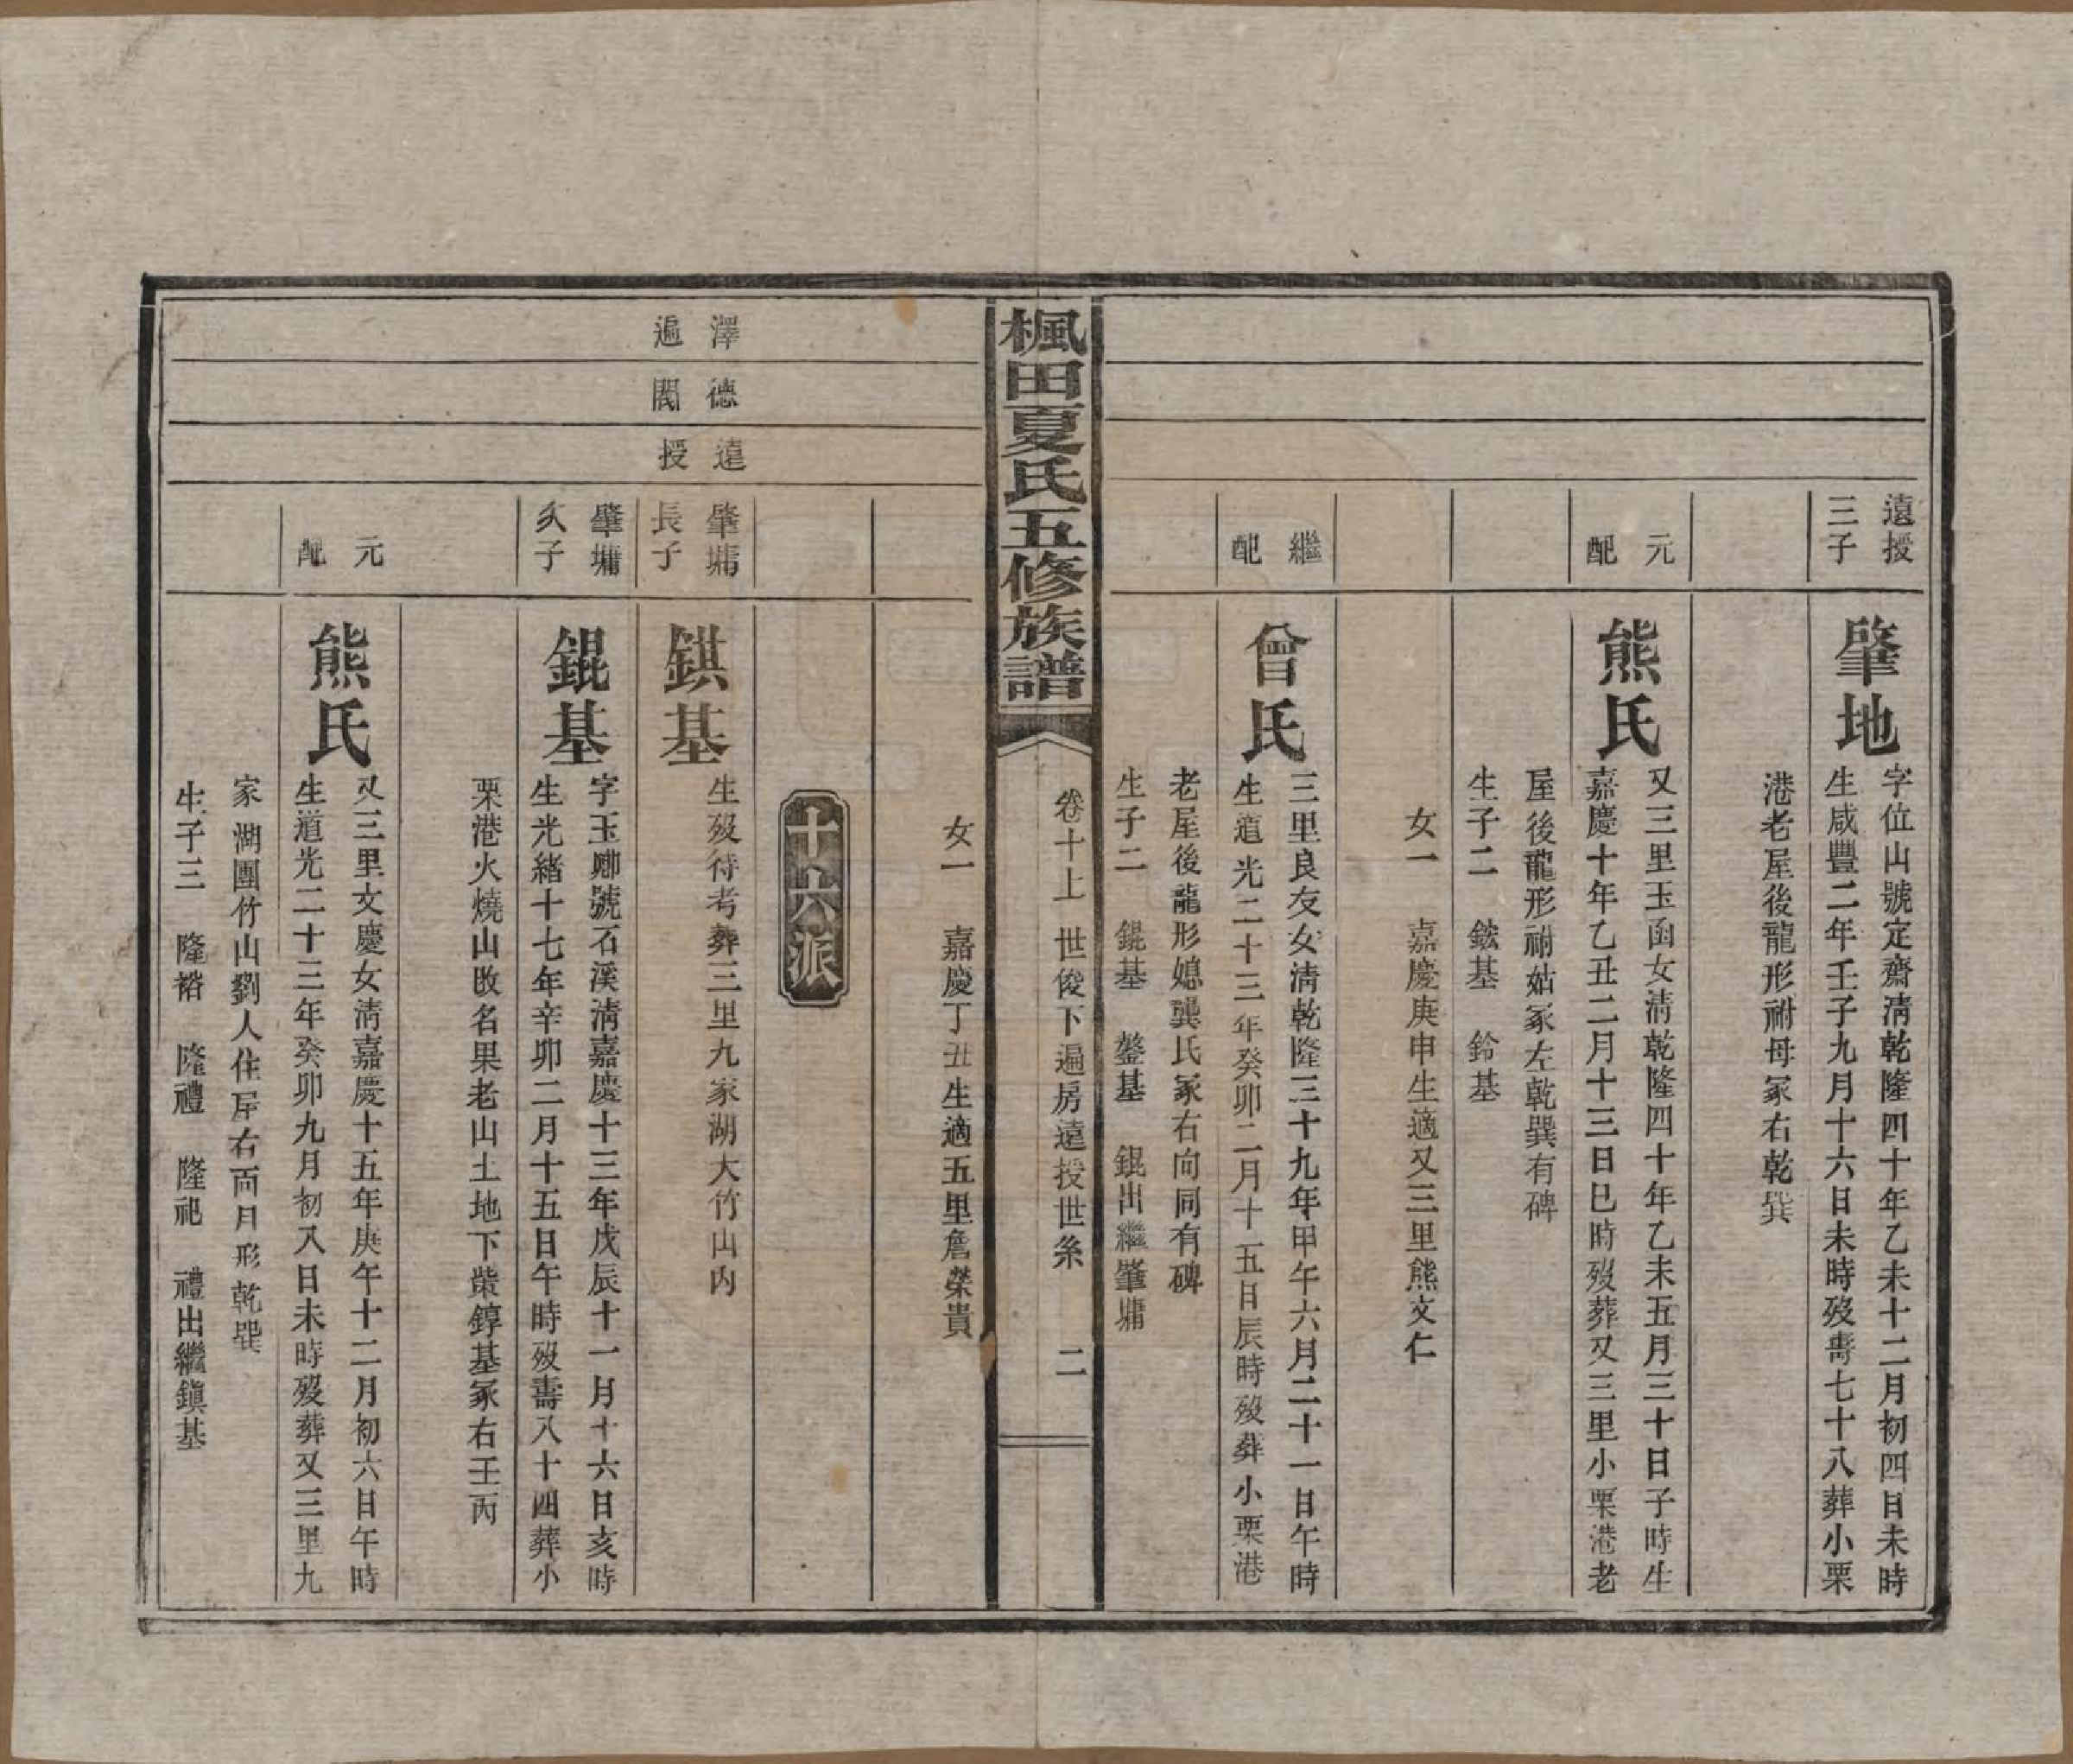 遠授
三子
肇地
字位山號定齋淸乾隆四十年乙未十二月初四日未時
生咸豐二年壬子九月十六日未時歿壽七十八葬小栗
港老屋後龍形祔母冢右乾巽
元
配
熊氏
又三里玉函女淸乾隆四十年乙未五月三十日子時生
嘉慶十年乙丑二月十三日巳時歿葬又三里小栗港老
屋後龍形祔姑冢左乾巽有碑
生子二 鋐基 鈴基
女一 嘉慶庚申生適又三里熊文仁
繼
配
曾氏
三里良友女淸乾隆三十九年甲午六月二十一日午時
生道光二十三年癸卯二月十五日辰時歿葬小栗港
老屋後龍形媳龔氏冢右向同有碑
生子二 錕基 鏊基 錕出繼肇墉
楓田夏氏五修族譜
卷十上 世俊下遍房遠授世系 二
女一 嘉慶丁丑生適五里詹榮貴
十六派
澤
遍
德
閎
遠
授
肇墉
長子
錤基
生歿待考葬三里九家湖大竹山內
肇墉
次子
錕基
字玉卿號石溪淸嘉慶十三年戊辰十一月十六日亥時
生光緒十七年辛卯二月十五日午時歿壽八十四葬小
栗港火燒山改名果老山土地下紫錞基冢右壬丙
元
配
熊氏
又三里文慶女淸嘉慶十五年庚午十二月初六日午時
生道光二十三年癸卯九月初八日未時歿葬又三里九
家湖團竹山劉人住屋右兩月形乾巽
生子三 隆裕 隆禮 隆祀 禮出繼鎭基